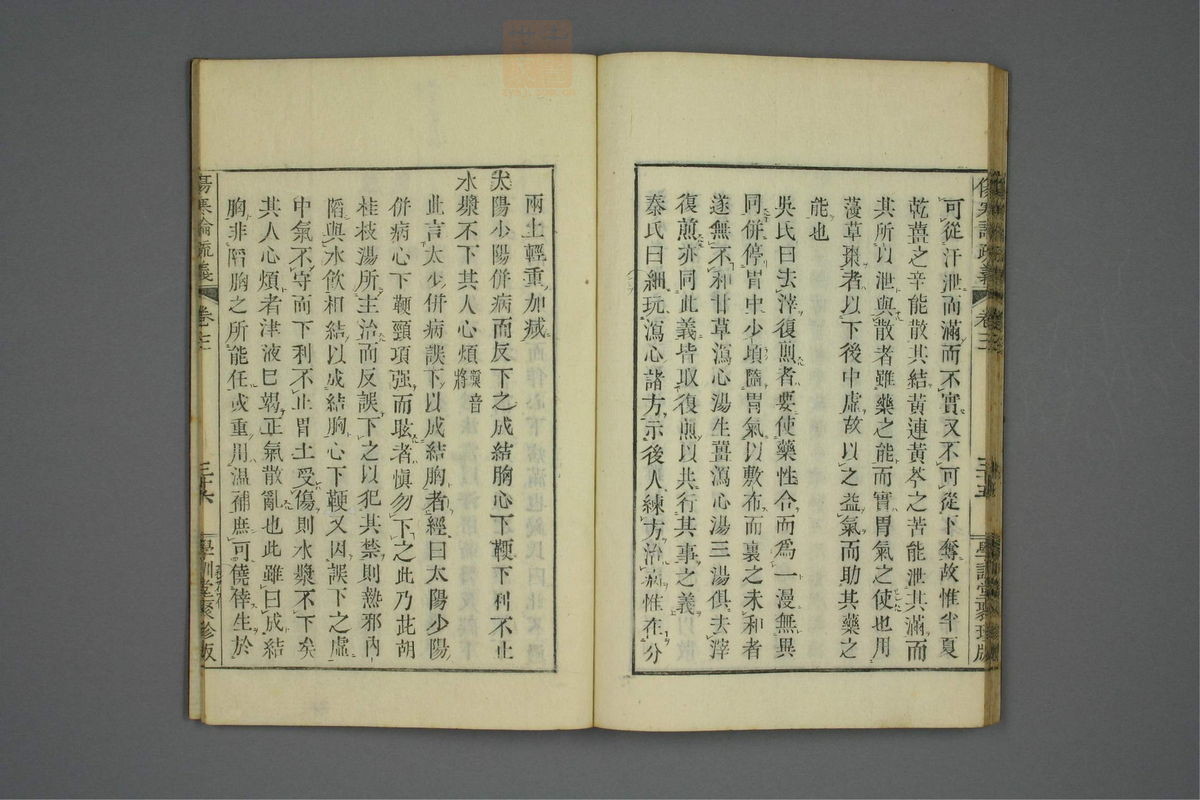 可從汗泄而滿而不實又不可從下奪故惟半夏
乾薑之辛能散其結黃連黃芩之苦能泄其滿而
其所以泄與散者雖藥之能而實胃氣之使也用
蓡草棗者以下後中虛故以之益氣而助其藥之
能也
吳氏曰去滓復煎者要使藥性合而爲一漫無異
同併停胃中少頃隨胃氣以敷布而裏之未和者
遂無不和甘草瀉心湯生薑瀉心湯三湯俱去滓
復煎亦同此義皆取復煎以共行其事之義
秦氏曰細玩瀉心諸方示後人練方治病惟在分
兩上輕重加減
太陽少陽併病而反下之成結胸心下鞕下利不止
水漿不下其人心煩漿音將
此言太少併病誤下以成結胸者經曰太陽少陽
併病心下鞕頸項强而眩者愼勿下之此乃茈胡
桂枝湯所主治而反誤下之以犯其禁則熱邪內
陷與水飮相結以成結胸心下鞕又因誤下之虛
中氣不守而下利不止胃土受傷則水漿不下矣
其人心煩者津液已竭正氣散亂也此雖曰成結
胸非陷胸之所能任或重用溫補庶可僥倖生於
傷寒論疏義
卷三
三十六
學訓堂聚珍版